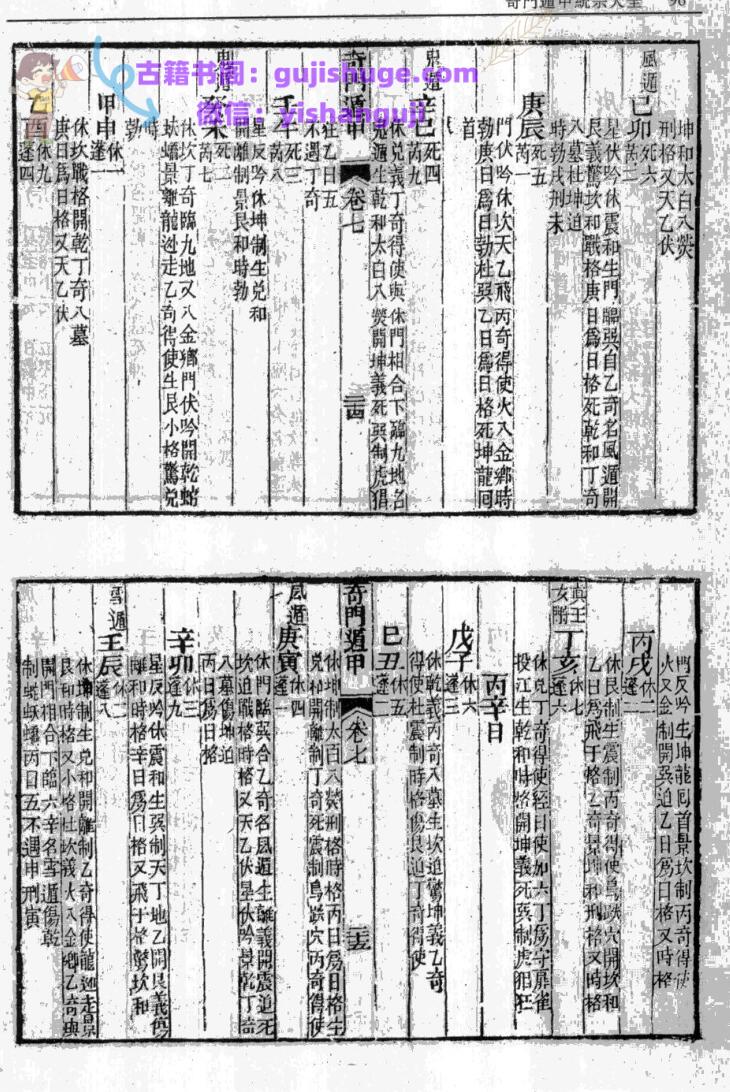 奇門遁甲統宗大全 96
古籍书阁：gujishuge.com
微信：yishanguji
坤和太白入熒
刑格又天乙伏
風遁
己卯死六
芮二
星伏吟休震和生門臨巽自乙奇名風遁開
艮義驚坎和戰格庚日為日格死乾和丁奇
入墓杜坤迫
時勃戌刑未
庚辰死五
芮一
門伏吟休坎天乙飛丙奇得使火入金鄉時
勃庚日為日勃杜巽乙日為日格死坤龍回
首
鬼遁
辛巳死四
芮九
休兌義丁奇得使與休門相合下臨九地名
鬼遁生乾和太白入熒開坤義死巽制虎猖
奇門遁甲
卷七
三四
狂乙日五
不遇丁奇
壬午死三
芮八
星反吟休坤制生兌和
開離制景艮和時勃
鬼遁
癸未死二
芮七
休坎丁奇臨九地又入金鄉門伏吟開乾蛇
妖蟠景離龍逃走乙奇得使生艮小格驚兌
時
勃
甲申休一
蓬一
休坎戰格開乾丁奇入墓
庚日為日格又天乙伏
乙酉休九
蓬四
門反吟生坤龍回首景坎制丙奇得使
火又金制開巽迫乙日為日格又時格
丙戌休二
蓬二
休艮制生震制丙奇得使鳥跌穴開坎和
乙日為飛干格乙奇景坤和刑格又時格
真王
女閉
丁亥休七
蓬六
休兌丁奇得使經日使加六丁為守扉雀
投江生乾和時格開坤義死巽制虎猖狂
丙辛日
戊子休六
蓬三
休乾義丙奇入墓生坎迫驚坤義乙奇
得使杜震制時格傷艮迫丁奇得使
己丑休五
蓬二
奇門遁甲
卷七
三五
休坤制太白入熒刑格時格丙日為日格生
兌和開離制丁奇死震制鳥跌穴丙奇得使
風遁
庚寅休四
蓬一
休門臨巽合乙奇名風遁生離義開震迫死
坎迫戰格時格又天乙伏星伏吟景乾丁奇
入墓傷坤迫
丙日為日格
辛卯休三
蓬九
星反吟休震和生巽制天丁地乙開艮義傷
離和時格辛日為日格又飛干格驚坎和
雲遁
壬辰休二
蓬八
休坤制生兌和開離制乙奇得使龍逃走景
艮和時格又小格杜坎義火入金鄉乙奇與
開門相合下臨六辛名雲遁傷乾
制蛇妖蟠丙日五不遇申刑寅